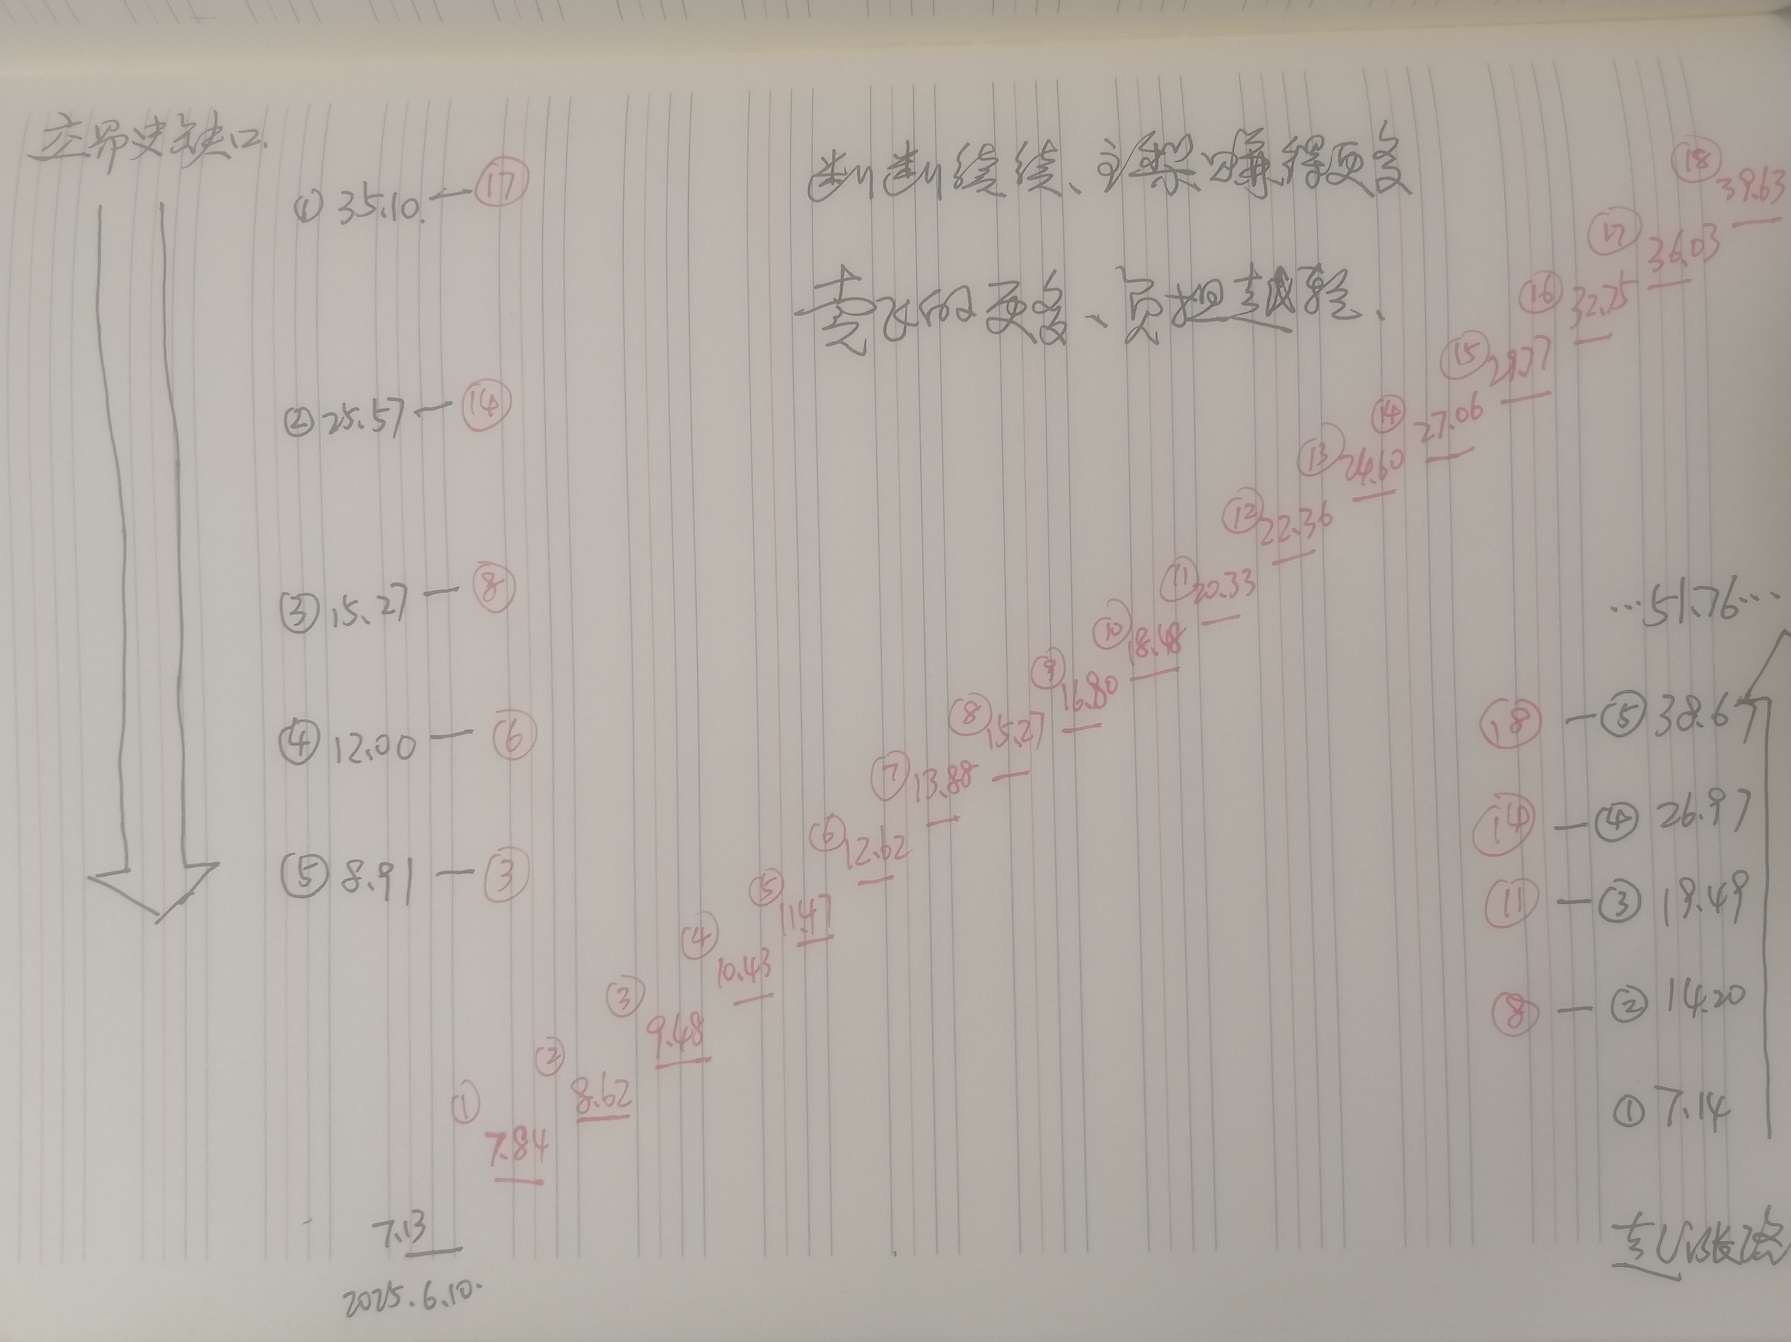 立昂史缺口.
① 35.10. — ⑰
② 25.57 — ⑭
③ 15.27 — ⑧
④ 12.00 — ⑥
⑤ 8.91 — ③
断断续续、
得更多
的更多、负担越轻、
7.13
2025.6.10.
① 7.84
② 8.62
③ 9.48
④ 10.43
⑤ 11.47
⑥ 12.62
⑦ 13.88
⑧ 15.27
⑨ 16.80
⑩ 18.48
⑪ 20.33
⑫ 22.36
⑬ 24.60
⑭ 27.06
⑮ 29.77
⑯ 32.75
⑰ 36.03
⑱ 39.63
…51.76…
⑱ — ⑤ 38.67
⑭ — ④ 26.97
⑪ — ③ 19.49
⑧ — ② 14.20
① 7.14